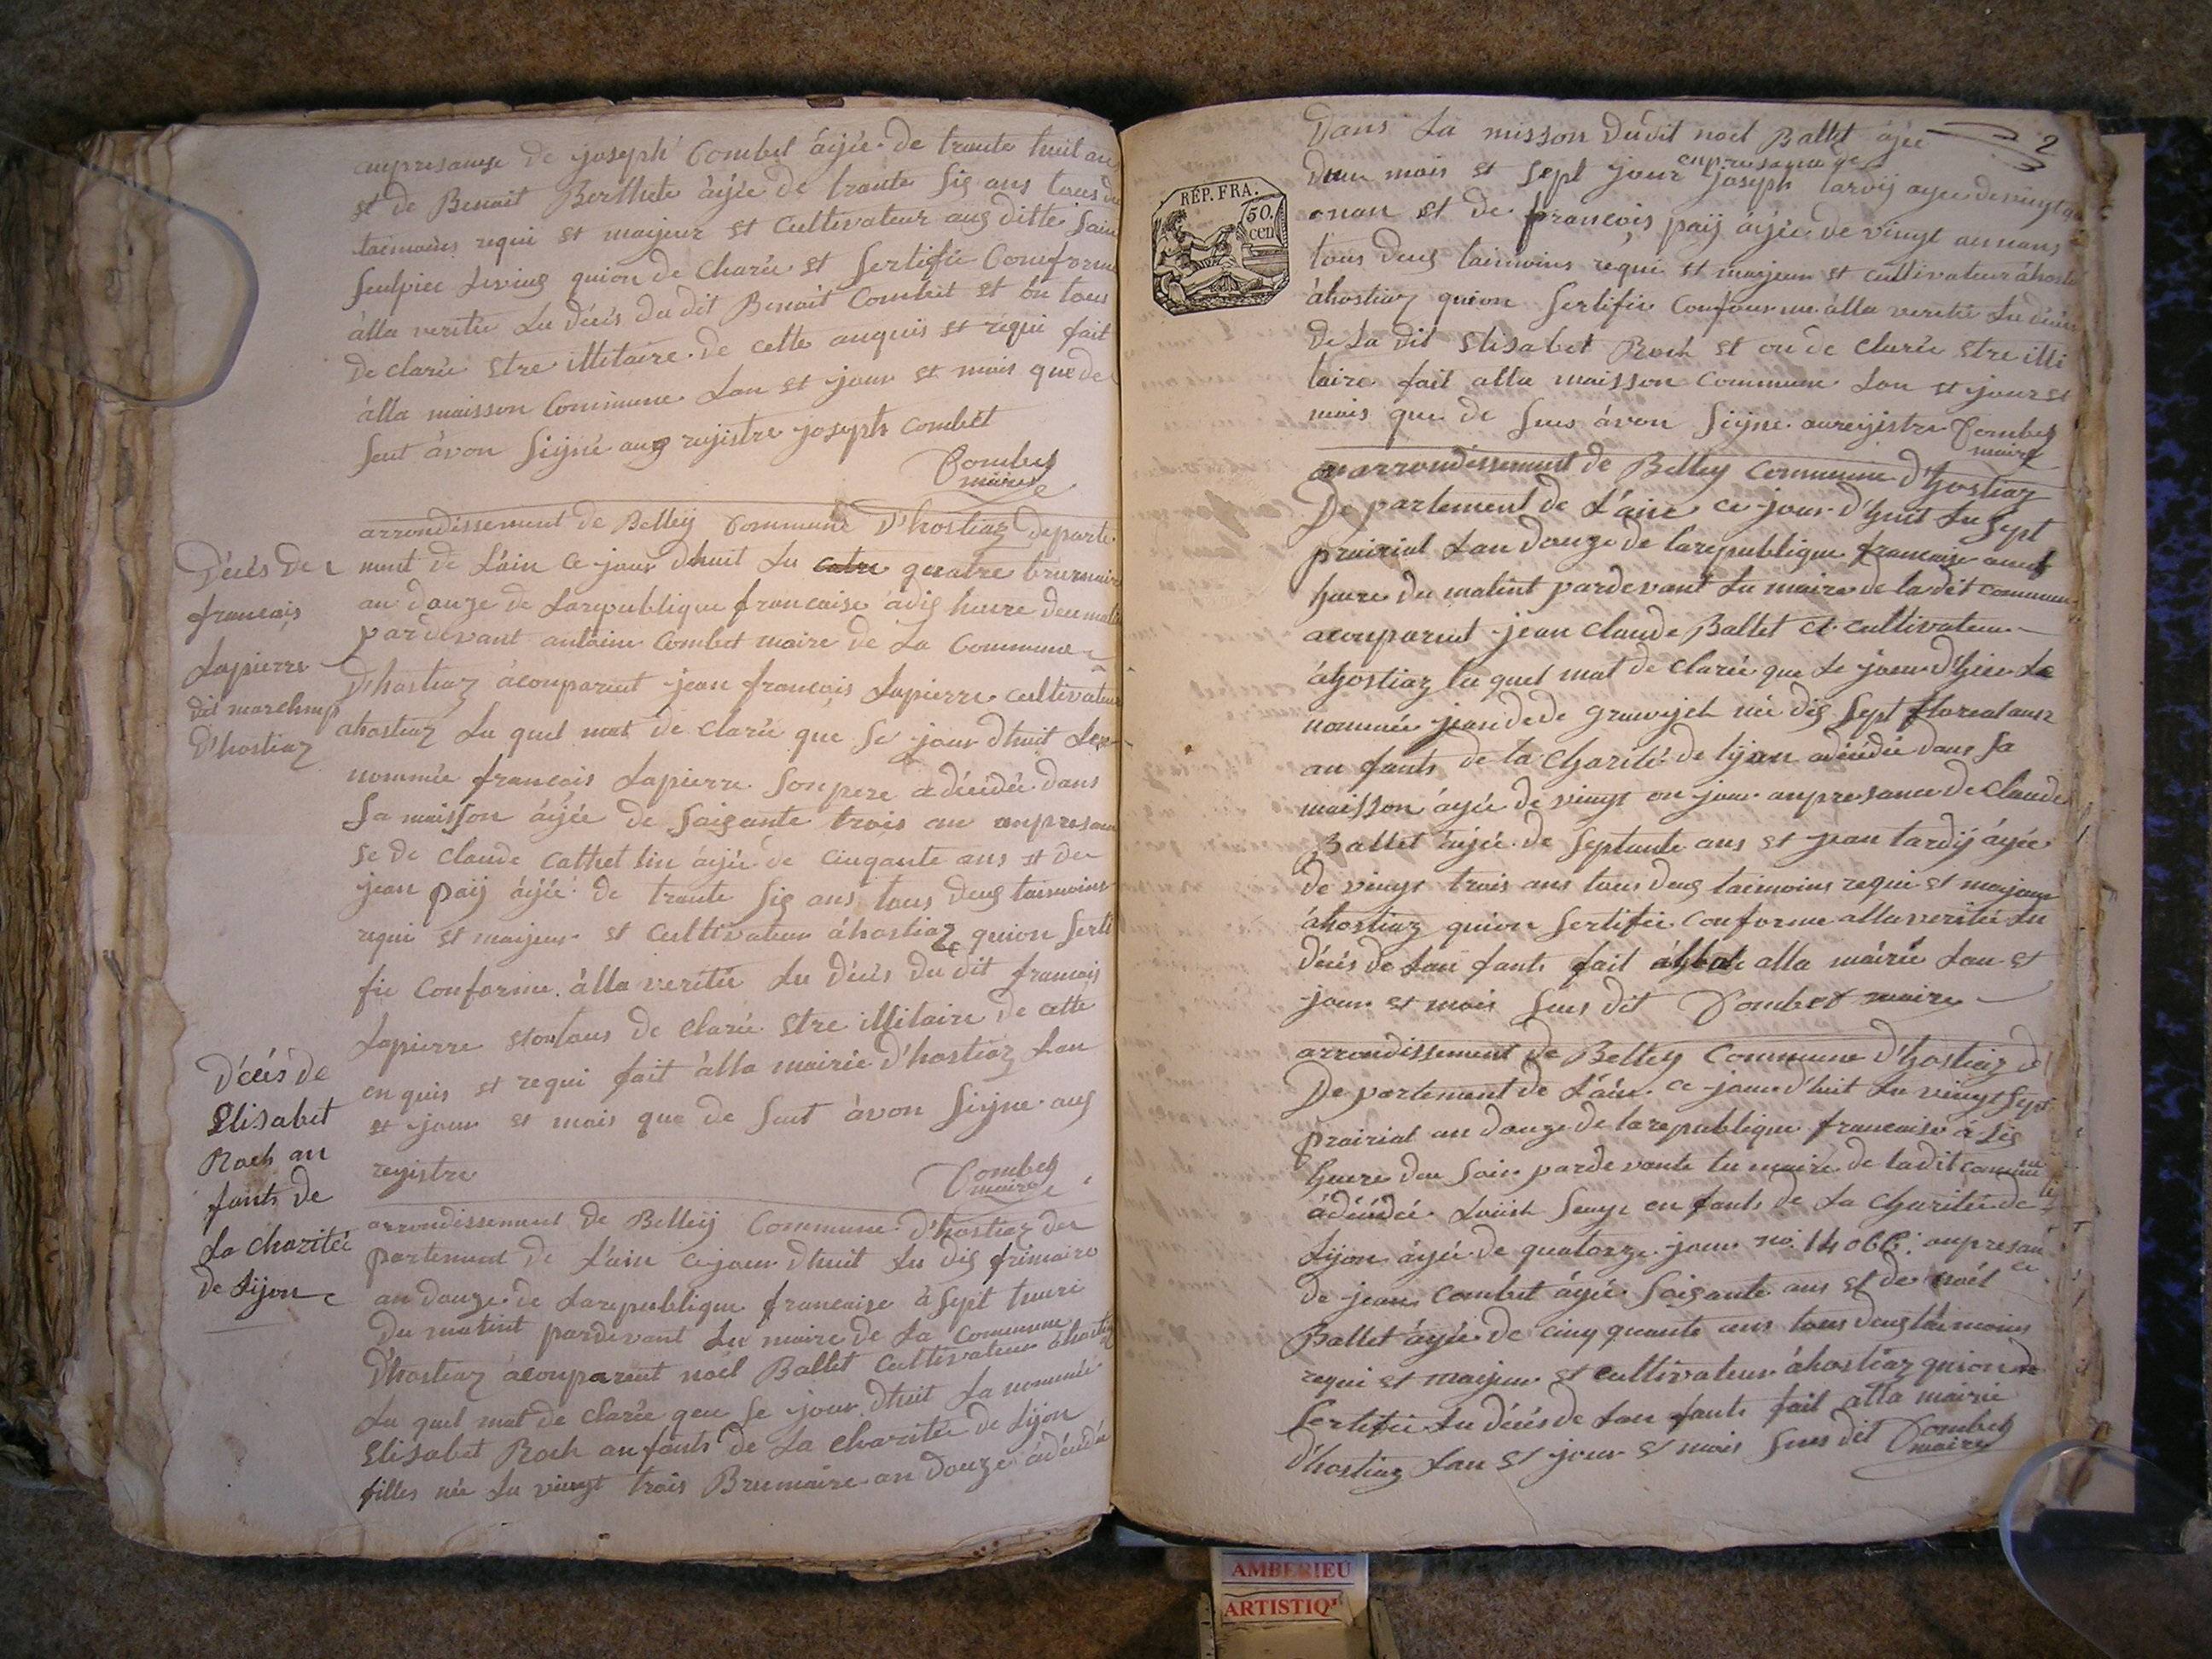 enpresanse de joseph Combet âijée de trante huit an
et de Benoit Berthete âijée de trante sis ans tous de
taimoins requi et maijeur et Cultivateur aus ditte Sain
Seulpice Levieus quion de Clarée et Sertifié Conforme
âlla veritée Lu décés du dit Benoit Combet et on tous
de clarée etre illitaire de cette anquis et requi fait
âlla maisson Commune Lan et jour et mois que de
seut âvon Signé aus rejistre joseph Combet
Combet
maire
arrondissement de Belley Commune D'hostiaz departe
Décés de
francois
Lapierre
dit marchmp
D'hostiaz
ment de L'ain ce jour dhuit Lu catre quatre brumaire
an douze de Larepublique francaise adis heure deu matin
pardevant antoine Combet maire de La Commune
D'hostiaz âconparent jean françois Lapierre cultivateur
ahostiaz Lu quel mat de clarée que Se jour dhuit Le
nommée francois Lapierre Son pere a décidée dans
Sa maisson âijée de Saisante trois an enpresan
se de Claude Cathet lin âijée de Cinqante ans et de
jean paij âijée de trante Sis ans tous deus taimoins
requi et maijeur et Cultivateur âhostiaz quion Serti
fie Conforme âlla veritée Lu décés du dit francois
Lapierre et on tous de clarée etre illitaire de cette
enquis et requi fait âlla mairie d'hostiaz Lan
et jour et mois que de Seut âvon Signe aus
registre
Combet
maire
Décés de
Elisabet
Roch an
fants de
La charitée
de Lijon
arrondissement de Belleij Commune d'hostiaz de
partement de L'ain ce jour dhuit Lu dis frimaire
an douze de Larepublique francaise à Sept heure
du matint pardevant Lu maire de La Commune
D'hostiaz âconparent noel Ballet Cultivateur âhostiaz
Lu quel mat de clarée qeu Se jour dhuit La nommée
Elisabet Roch anfants de La charitée de Lijon
filles née Lu vingt trois Brumaire an Douze adécidé
2
RÉP. FRA.
50.
cen
Dans La misson dudit noel Ballet âjée
Dun mois et Sept jour enpresance de joseph tardij ayée devingt
onan et de françois paij âijée de vingt annans
tous deus taimoins requi et maijeur et cultivateur âhosti
âhostiaz quion Sertifie Conforme âlla veritée Lu décés
de La dit Elisabet Roch et on de clarée etre illi
taire fait alla maisson Commune Lan et jour et
mois que de Sus âvon Signe auregistre Combet
maire
arrondissement de Belley Commune d'hostiaz
De partement de L'ain ce jour d'huit Lu Sept
prairial Lan Douze de larepublique francaise
heure du matint pardevant Lu maire de ladit commune
aconparent jean Claude Ballet cultivateur
âhostiaz lu quel mat de clarée que Le jour d'hier Le
nommée née dis Sept floreal an12
an fants de la Charité de Lijon adécidée dans Sa
maisson âijée de vingt on jour anpresance de Claude
Ballet âijée de Septante ans et jean tardij âijée
De vingt trois ans tous deus taimoins requi et maijeur
âhostiaz quion Sertifie Conforme alla veritée Lu
décés de Lan fants fait alla mairie Lan et
jour et mois Sus dit Combet maire
arrondissement de Belley Commune d'hostiaz d
De partement de L'ain ce jour d'huit Lu vingt Sept
prairial an douze de larepublique francaise â Sis
heure deu Soir pardevante Lu maire de ladit commune
âdécidée Louise en fants de La Charitée de
Lijon âijée de quatorze jour no. 14066 anpresance
de jean Combet âijé Soisante ans et de noël
Ballet âijée de cinqquante ans tous deus taimoins
requi et maijeur et Cultivateur âhostiaz quion
Sertifié Lu décés de Lan fants fait alla mairie
d'hostiaz Lan et jour et mois Sus dit Combet
maire
AMBERIEU
ARTISTIQ'